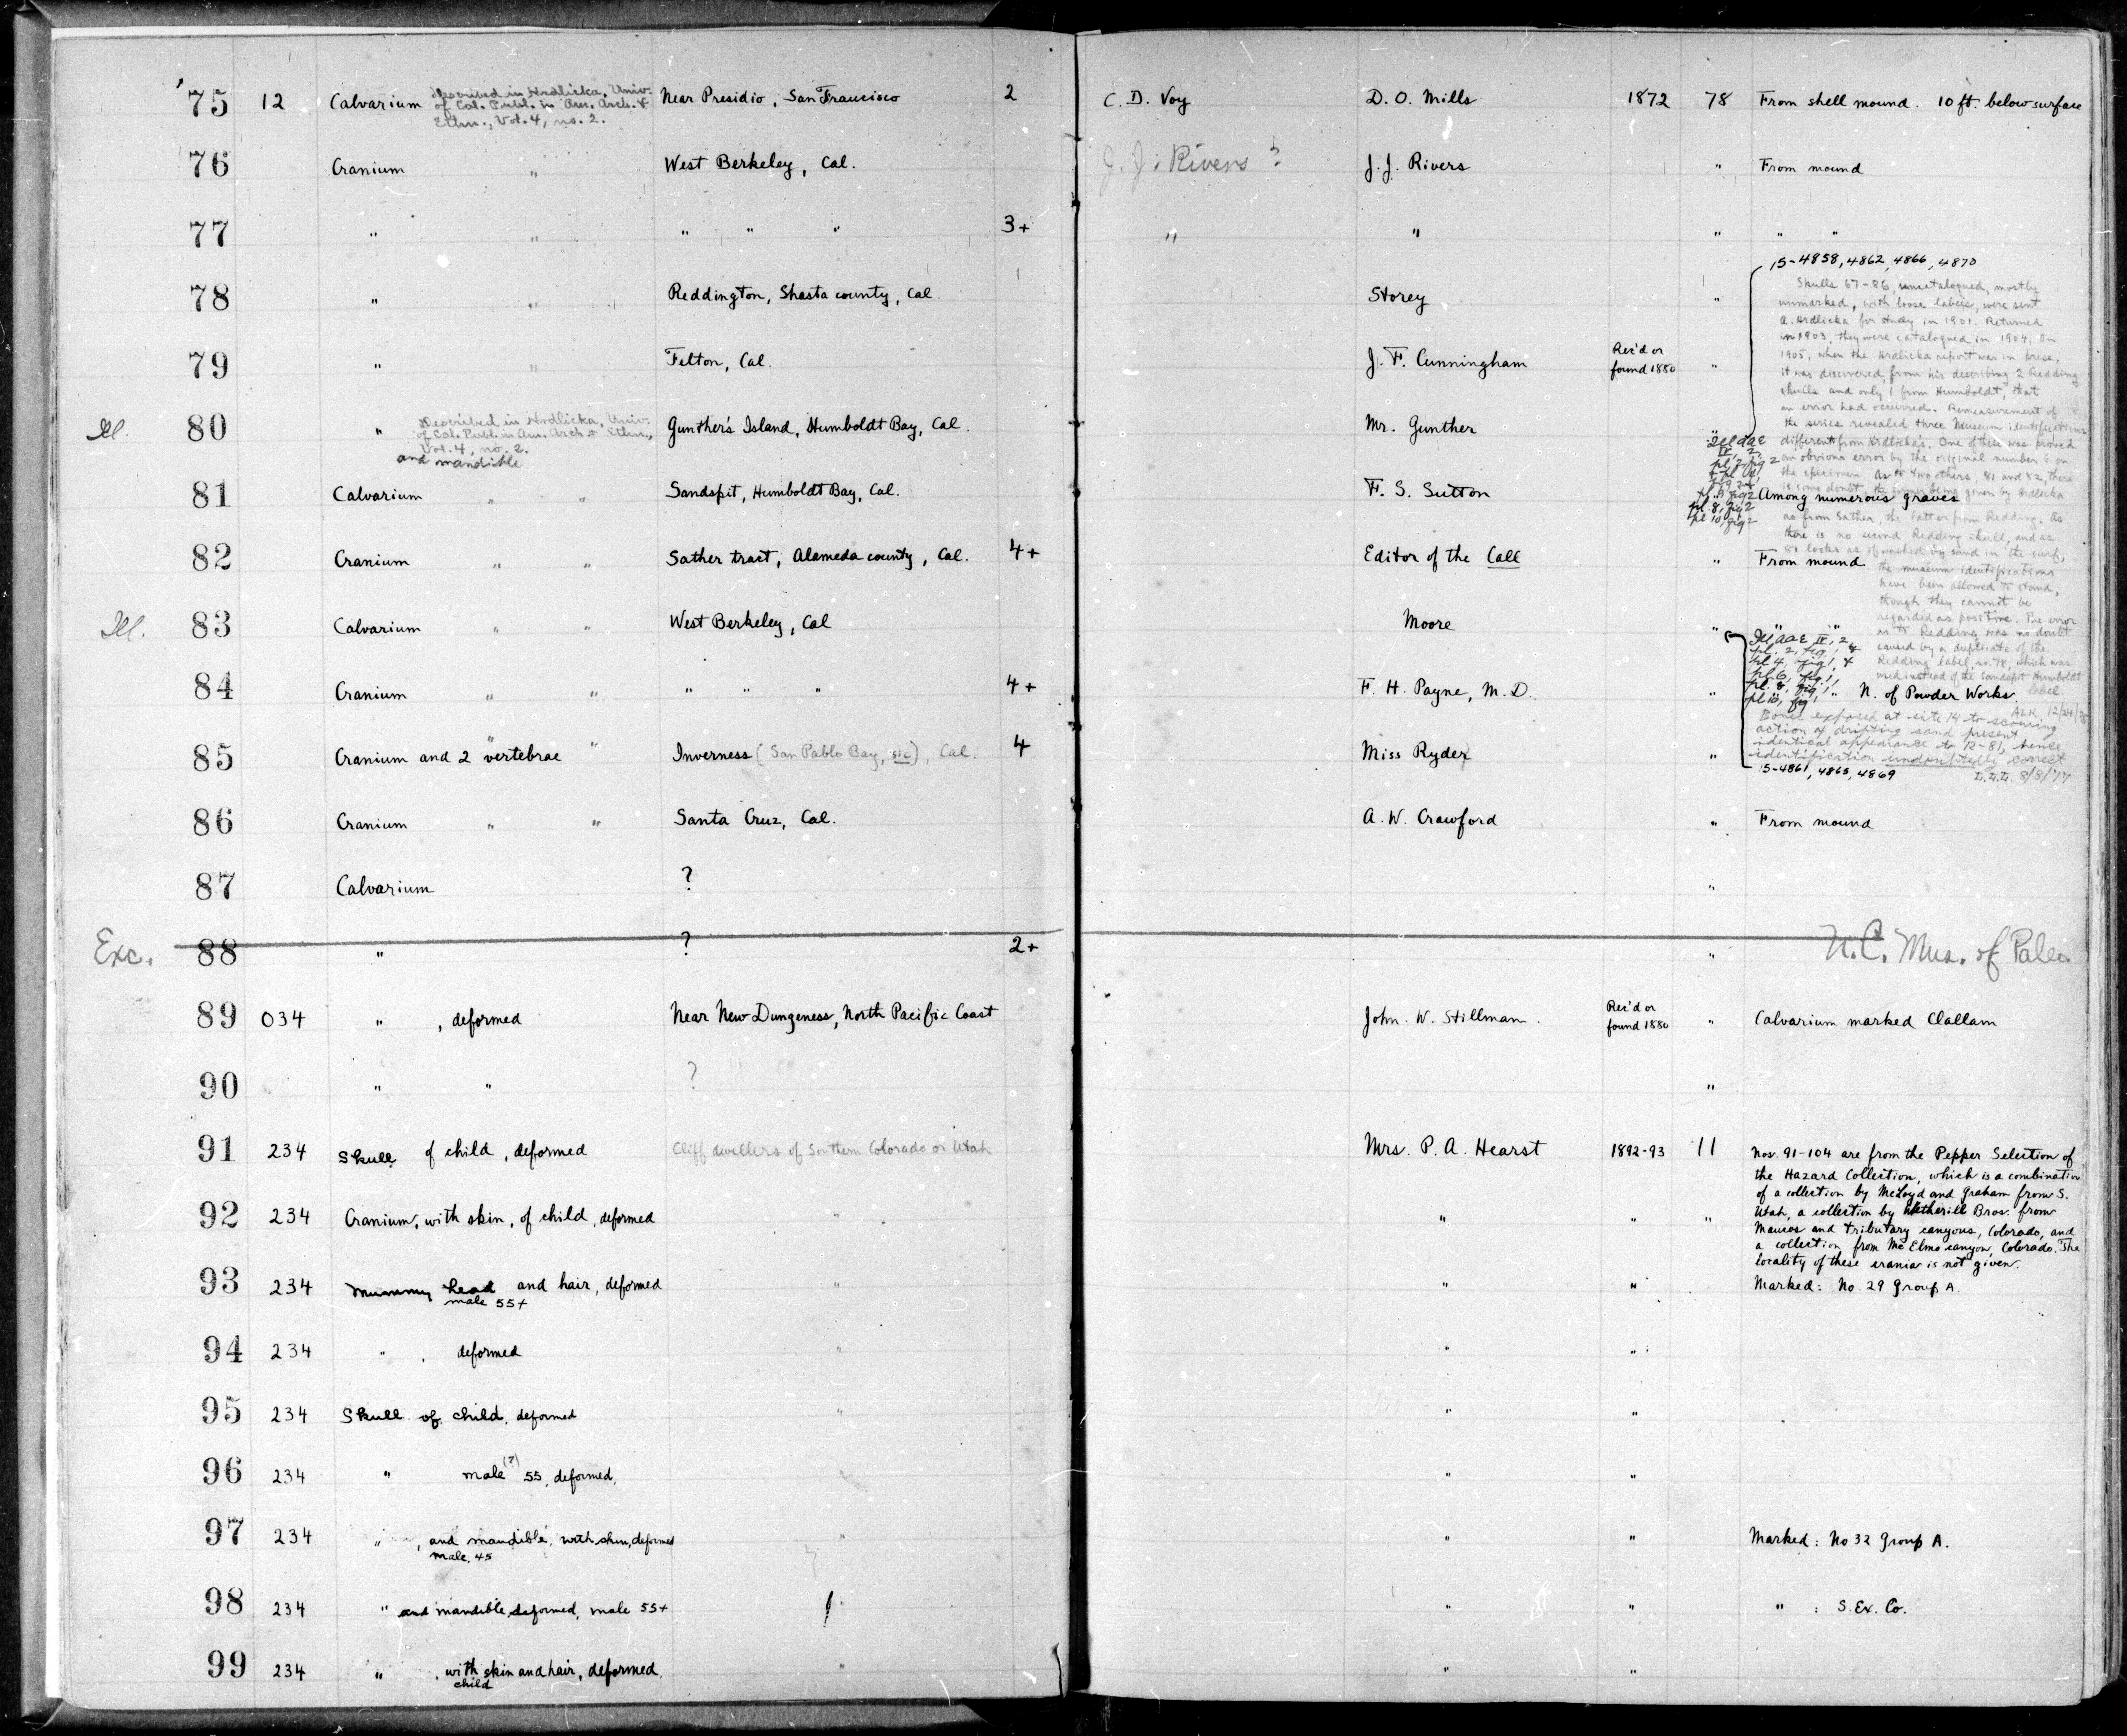 '75 12 Calvarium Described in Hrdlicka, Univ. Near Presidio, San Francisco 2 C. D. Voy D. O. Mills 1872 78 From shell mound. 10 ft. below surface
of Cal. Publ. in Am. Arch. &
Ethn., Vol. 4, no. 2.
76 Cranium " West Berkeley, Cal. J. J. Rivers ? J. J. Rivers " From mound
77 " " " " " 3+ " " " " "
78 " " Reddington, Shasta county, Cal. Storey "
79 " " Felton, Cal. J. F. Cunningham Rec'd or found 1880 "
Ill. 80 " Described in Hrdlicka, Univ. Gunther's Island, Humboldt Bay, Cal. Mr. Gunther "
of Cal. Publ. in Am. Arch. & Ethn.,
Vol. 4, no. 2.
and mandible
15-4858, 4862, 4866, 4870
Skulls 67-86, uncatalogued, mostly
unmarked, with loose labels, were sent
A. Hrdlicka for study in 1901. Returned
in 1903, they were catalogued in 1904. In
1905, when the Hrdlicka report was in press,
it was discovered, from his describing 2 Redding
skulls and only 1 from Humboldt, that
an error had occurred. Remeasurement of
the series revealed three Museum identifications
different from Hrdlicka's. One of these was proved
an obvious error by the original number 6 on
the specimen. As to two others, 81 and 82, there
is some doubt, the former being given by Hrdlicka
as from Sather, the latter from Redding. As
there is no second Redding skull, and as
81 looks as if washed by sand in the surf,
the museum identifications
have been allowed to stand,
though they cannot be
regarded as positive. The error
as to Redding was no doubt
caused by a duplicate of the
Redding label, no. 78, which was
used instead of the Sandspit Humboldt
label.
ALK 12/24/
Ill AAE
IV, 2,
pl. 8, fig 2
pl 10, fig 2
81 Calvarium " " Sandspit, Humboldt Bay, Cal. F. S. Sutton Among numerous graves
82 Cranium " " Sather tract, Alameda county, Cal. 4+ Editor of the Call " From mound
Ill. 83 Calvarium " " West Berkeley, Cal Moore " " "
Ill AAE IV, 2,
pl. 2, fig 1, &
pl 4, fig 1, &
pl. 6, fig 1,
pl. 8, fig 1
pl 10, fig
84 Cranium " " " " " 4+ F. H. Payne, M. D. " " N. of Powder Works.
Bones exposed at site 14 to scouring
action of drifting sand present
identical appearance to 12-81, hence
identification undoubtedly correct
8/8/'17
15-4861, 4865, 4869
85 Cranium and 2 vertebrae " " Inverness (San Pablo Bay, sic), Cal. 4 Miss Ryder "
86 Cranium " " Santa Cruz, Cal. A. W. Crawford " From mound
87 Calvarium ? "
Exc. 88 " ? 2+ " U.C. Mus. of Paleo.
89 034 " , deformed Near New Dungeness, North Pacific Coast John W. Stillman. Rec'd or found 1880 " Calvarium marked Clallam
90 " " ? "
91 234 Skull of child, deformed Cliff dwellers of Southern Colorado or Utah Mrs. P. A. Hearst 1892-93 11 Nos. 91-104 are from the Pepper Selection of
the Hazard Collection, which is a combination
of a collection by McLoyd and Graham from S.
92 234 Cranium, with skin, of child, deformed " " " " Utah, a collection by Wetherill Bros. from
Mancos and tributary canyons, Colorado, and
a collection from McElmo canyon, Colorado. The
locality of these crania is not given.
93 234 Mummy head and hair, deformed " " " Marked: No. 29 Group A.
male 55+
94 234 " , deformed " " "
95 234 Skull of child, deformed " " "
96 234 " male (?) 55, deformed, " " "
97 234 " , and mandible, with skin, deformed " " " Marked: No 32 Group A.
male, 45
98 234 " and mandible, deformed, male 55+ " " " : S. Ex. Co.
99 234 " , with skin and hair, deformed. " " "
child